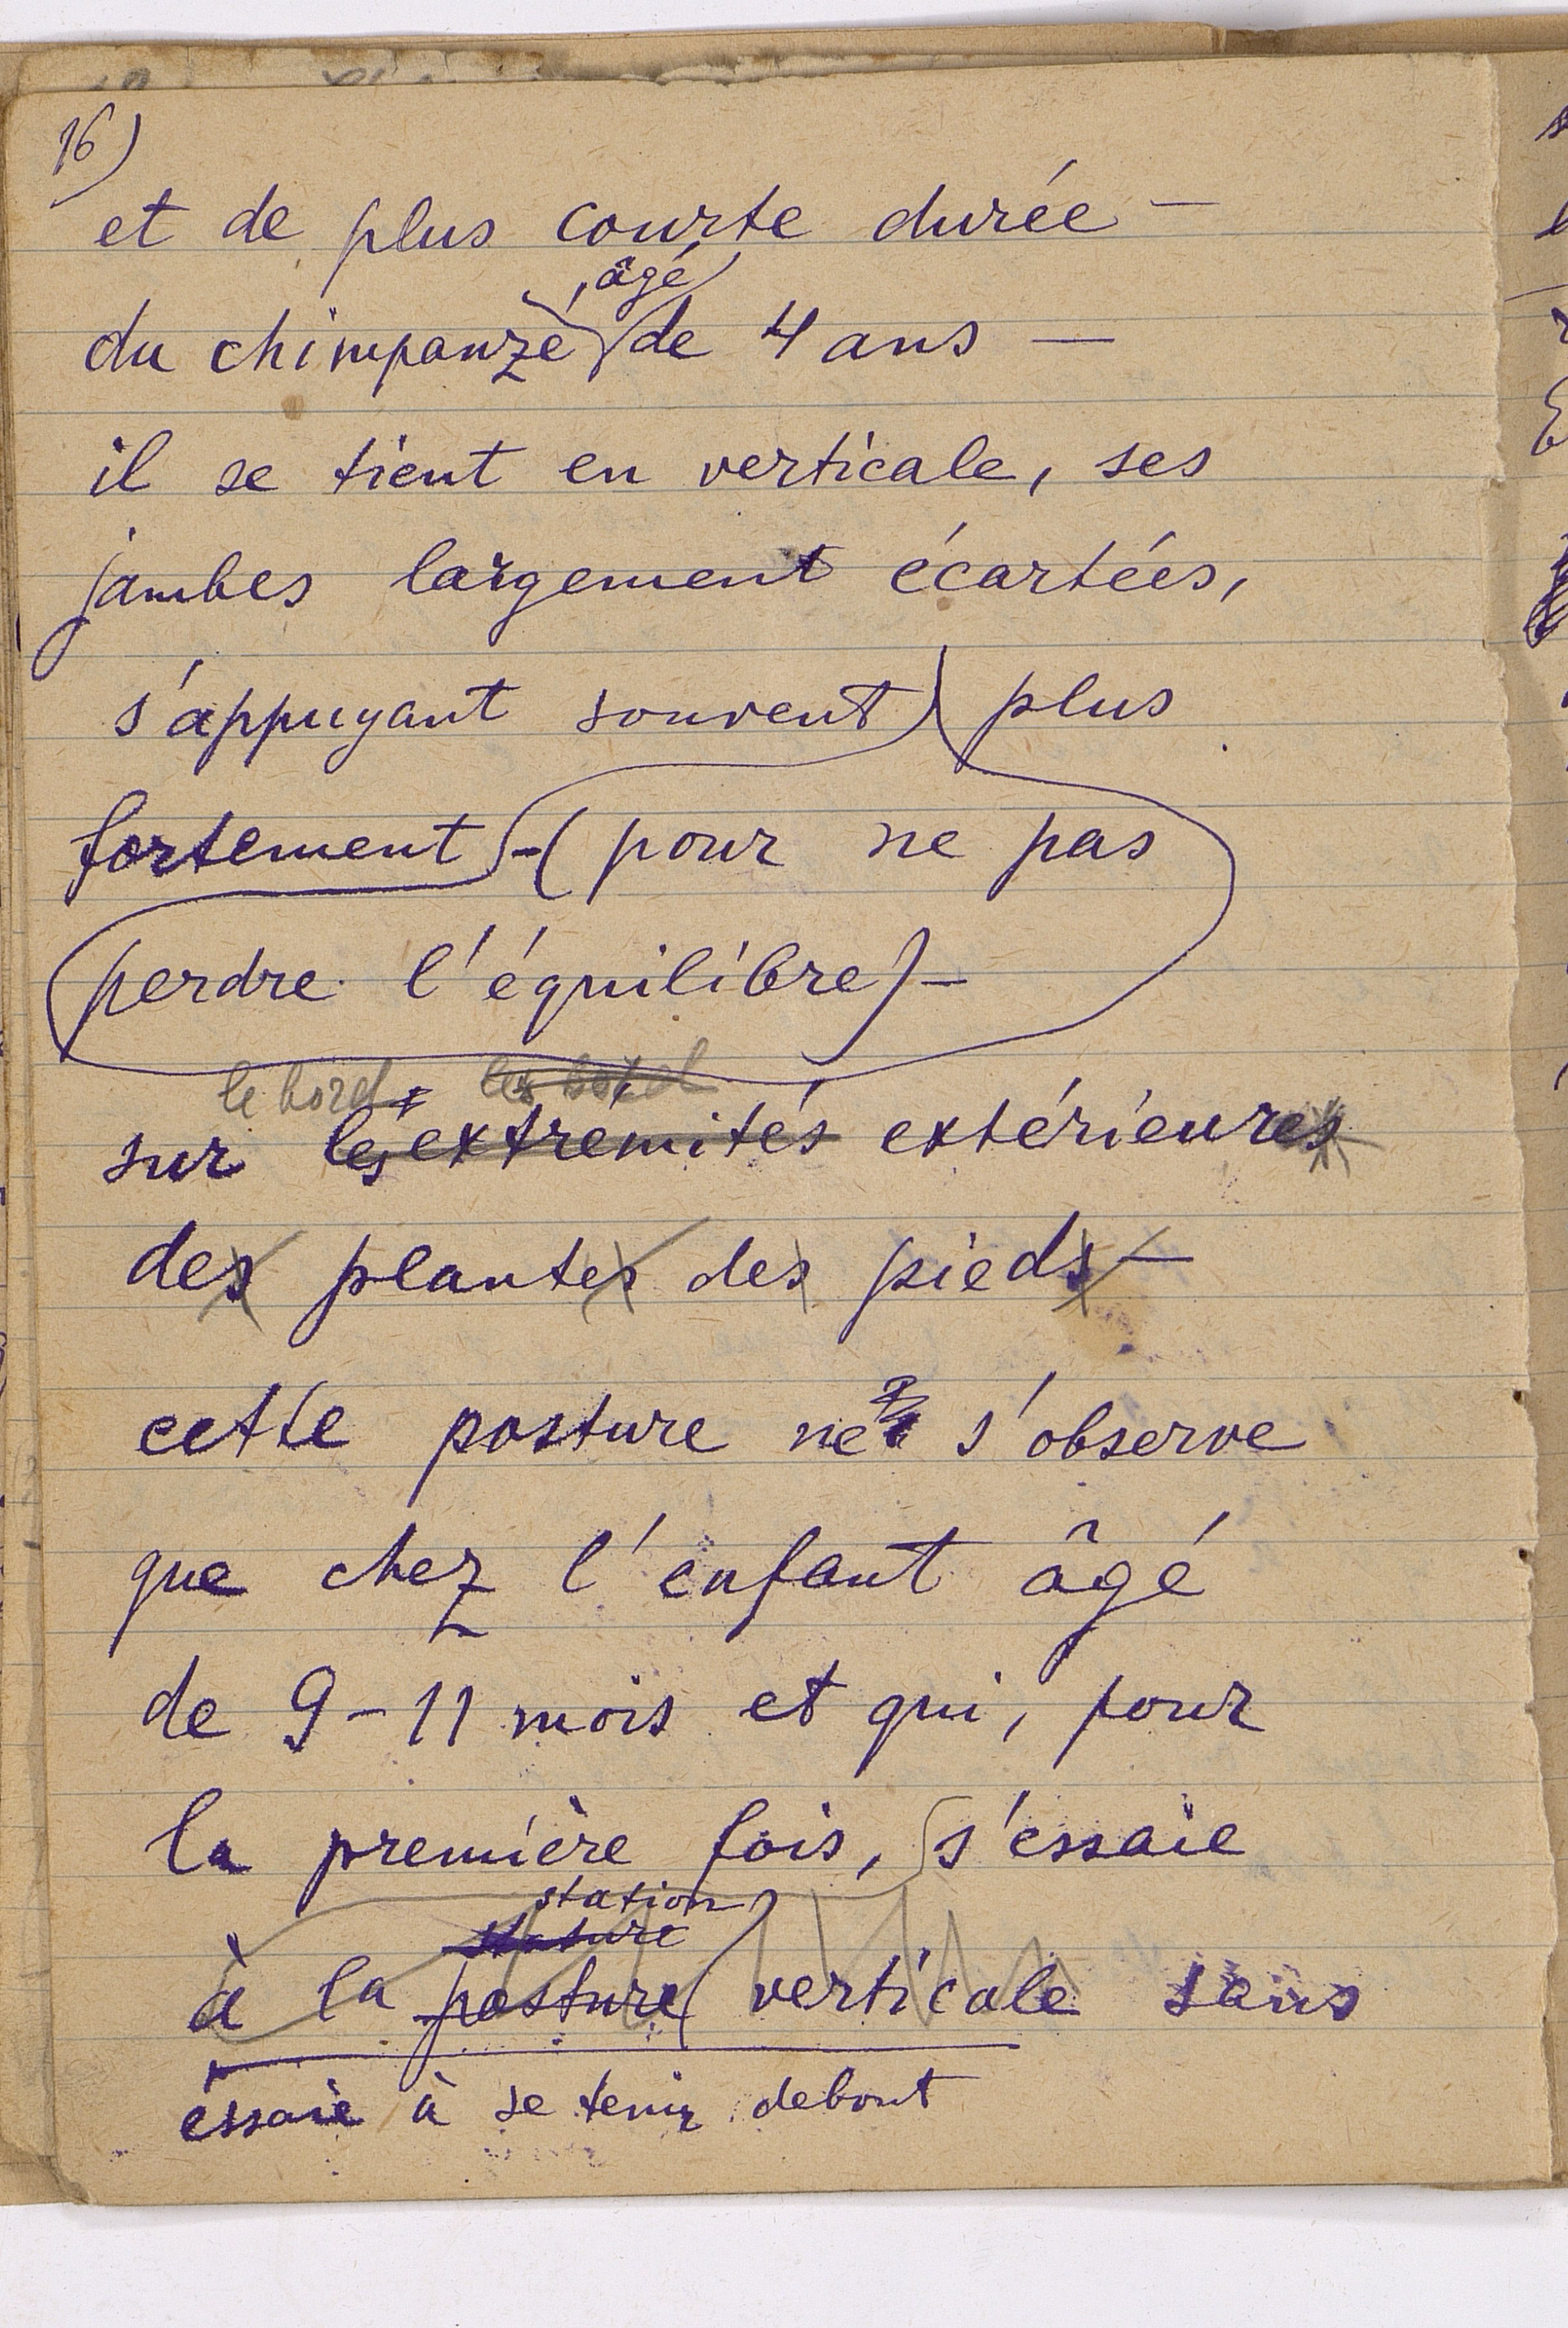 16)
et de plus courte durée —
, âgé
du chimpanzé de 4 ans —
il se tient en verticale, ses
jambes largement écartées,
s'appuyant souvent plus
fortement - (pour ne pas
perdre l'équilibre) -
le bord les bord
sur les extrémités extérieures
des plantes des pieds —
cette posture ne s'observe
que chez l'enfant âgé
de 9-11 mois et qui, pour
la première fois, s'essaie
station
stature
à la posture verticale sans
essaie à se tenir debout